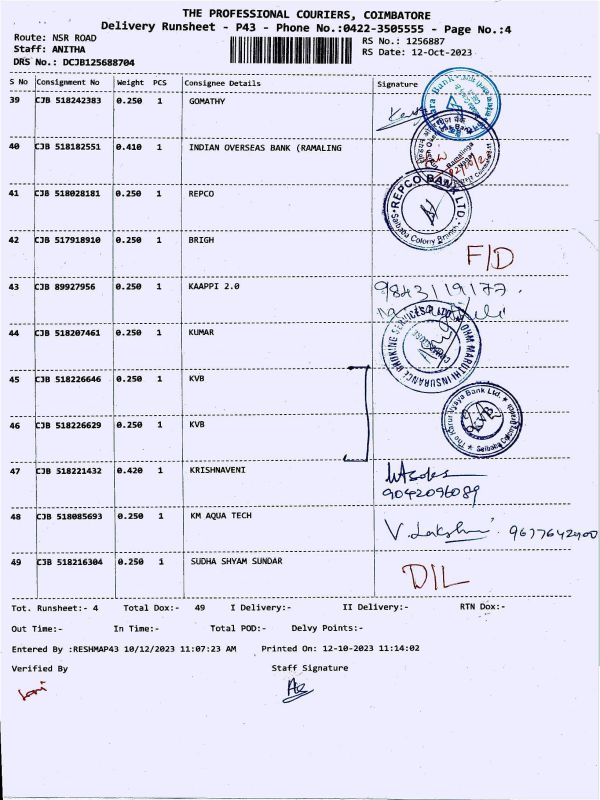 THE PROFESSIONAL COURIERS, COIMBATORE
Delivery Runsheet - P43 - Phone No.:0422-3505555 - Page No.:4
Route: NSR ROAD
RS No.: 1256887
Staff: ANITHA
RS Date: 12-Oct-2023
DRS No.: DCJB125688704
S No Consignment No Weight PCS Consignee Details Signature
39 CJB 518242383 0.250 1 GOMATHY
40 CJB 518182551 0.410 1 INDIAN OVERSEAS BANK (RAMALING
41 CJB 518028181 0.250 1 REPCO
REPCO BANK LTD.
Saibaba Colony Branch
42 CJB 517918910 0.250 1 BRIGH
F/D
43 CJB 89927956 0.250 1 KAAPPI 2.0
9843119177.
44 CJB 518207461 0.250 1 KUMAR
OHM MARUTHI INSURANCE BROKING SERVICES P LTD
45 CJB 518226646 0.250 1 KVB
46 CJB 518226629 0.250 1 KVB
The Karur Vysya Bank Ltd.
KVB
47 CJB 518221432 0.420 1 KRISHNAVENI
9042096089
48 CJB 518085693 0.250 1 KM AQUA TECH
V. Lakshmi 9677642900
49 CJB 518216304 0.250 1 SUDHA SHYAM SUNDAR
D/L
Tot. Runsheet:- 4 Total Dox:- 49 I Delivery:- II Delivery:- RTN Dox:-
Out Time:- In Time:- Total POD:- Delvy Points:-
Entered By :RESHMAP43 10/12/2023 11:07:23 AM Printed On: 12-10-2023 11:14:02
Verified By Staff Signature